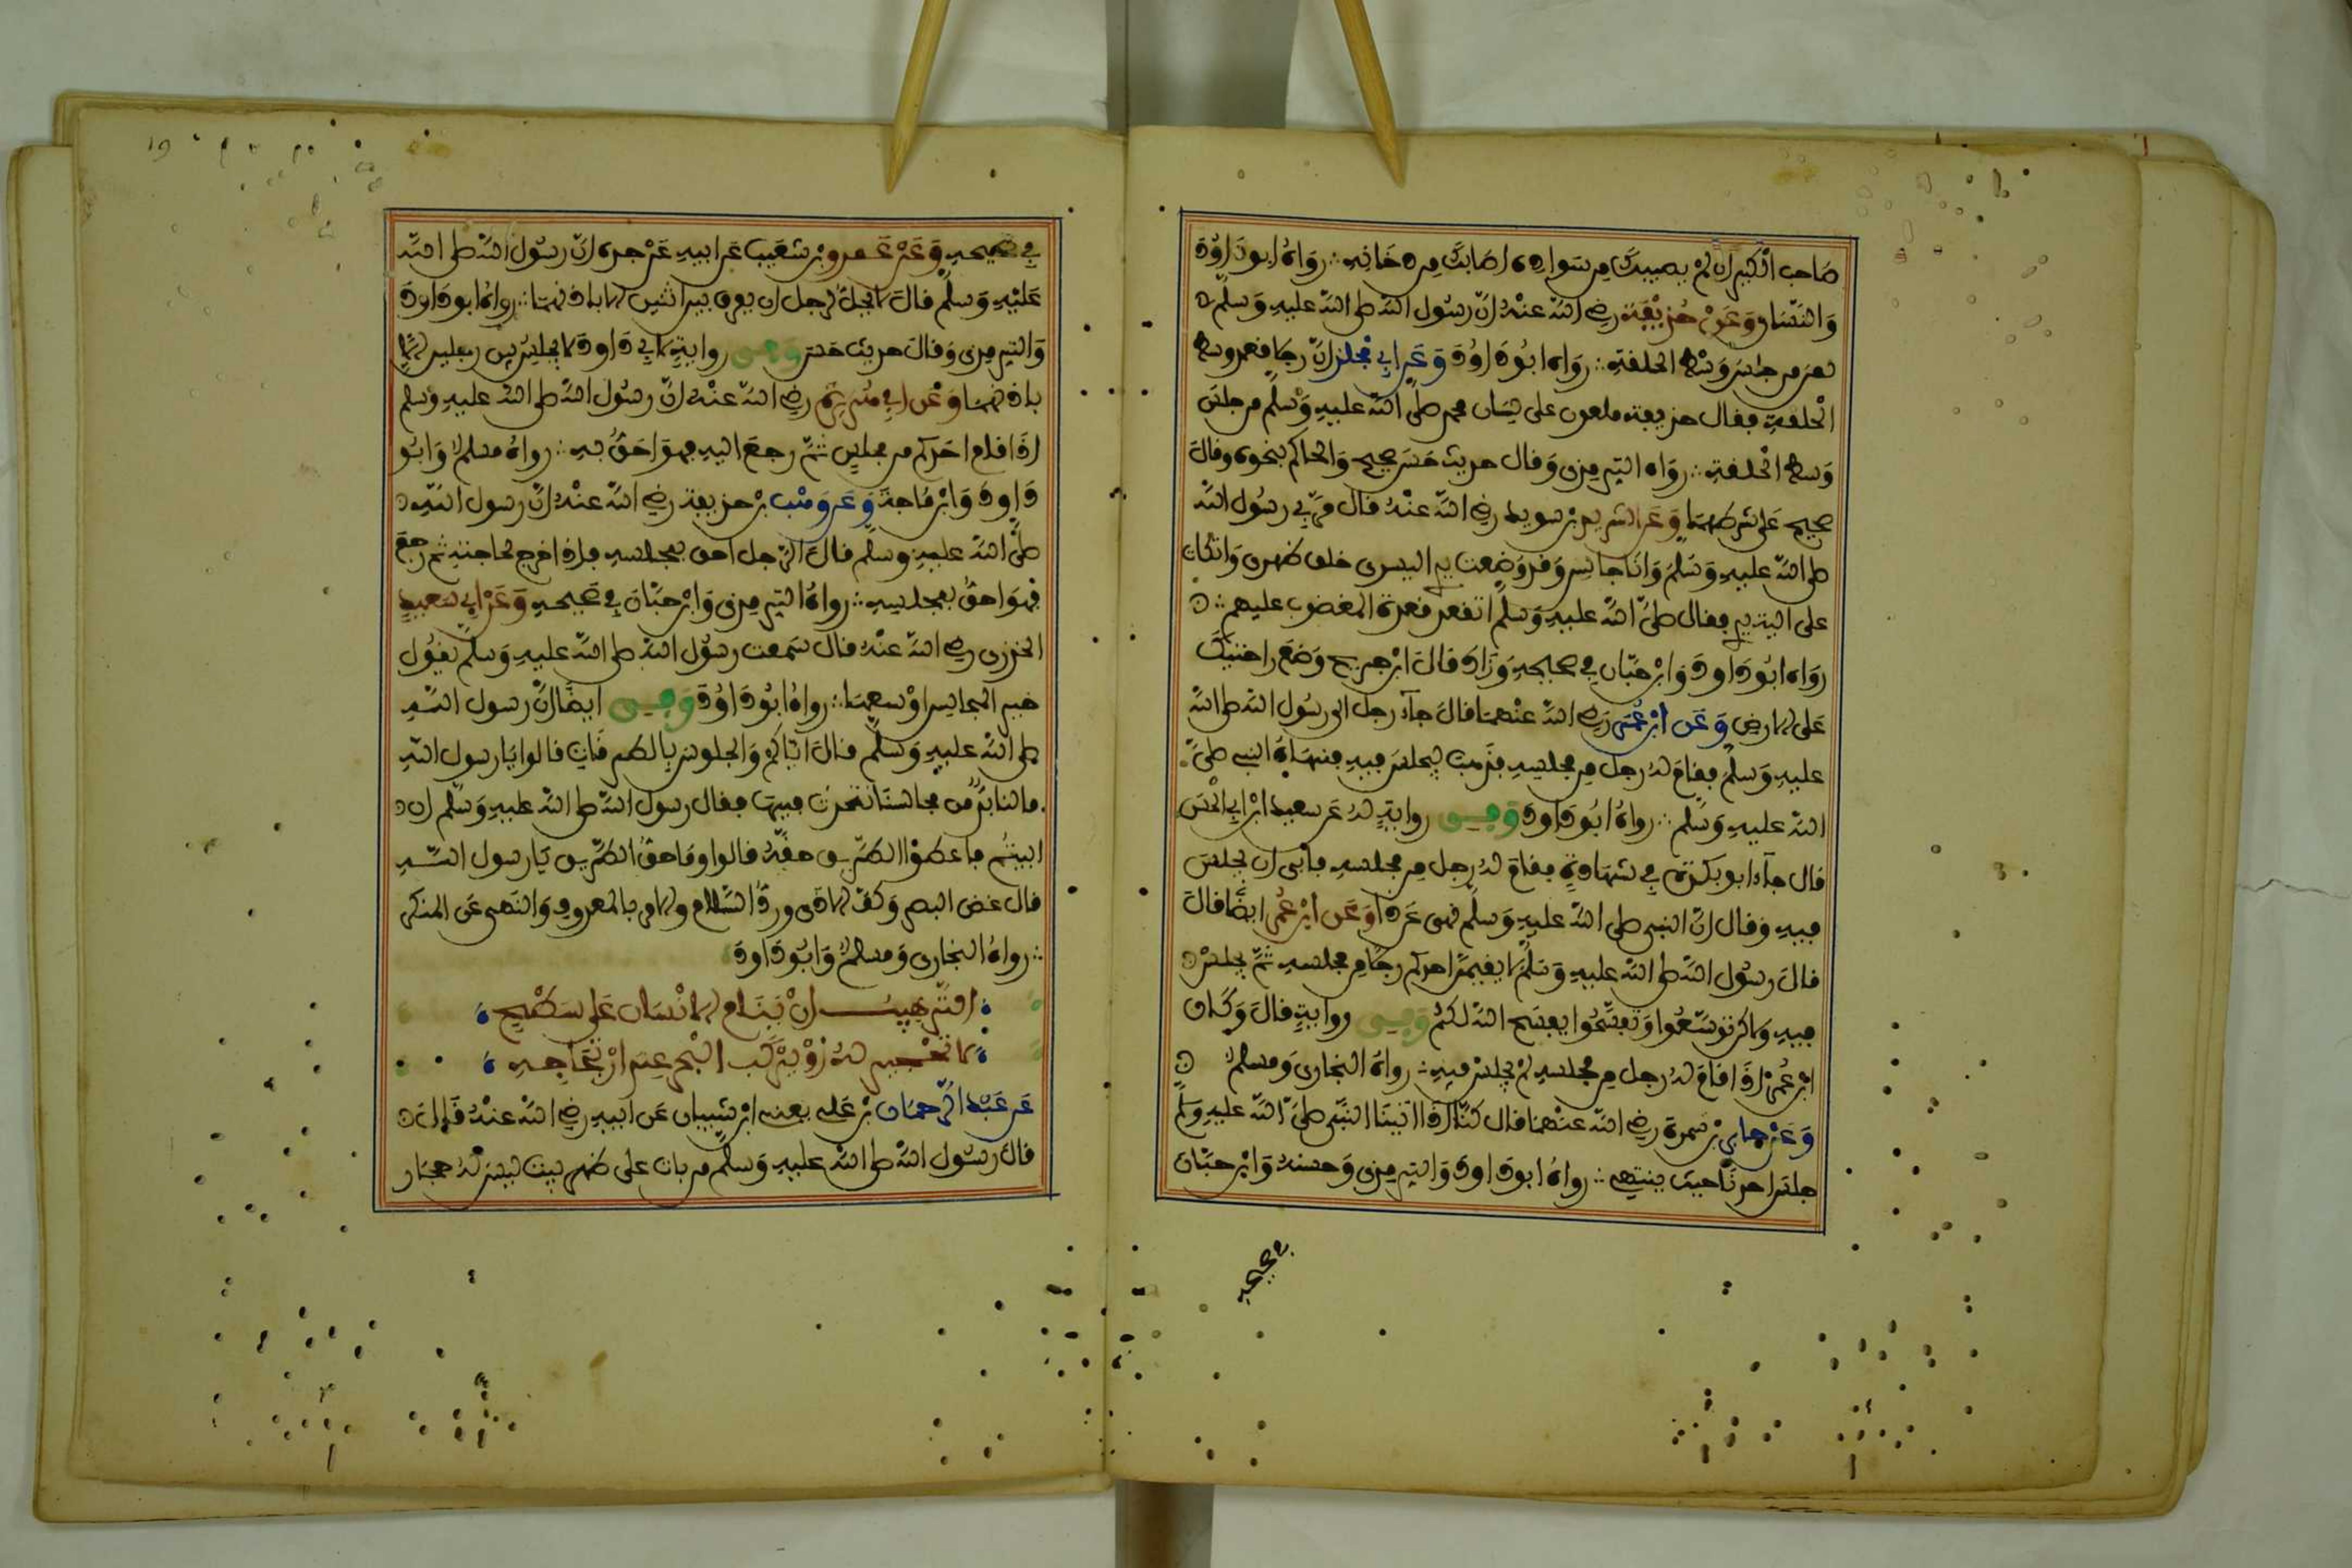 صَاحب الْكير ان لم يصيبك من سواده اصابك من دخانه ∴ رواه ابو داوُد
وَالنّسَاى وعن حُذيفة رضي اللّه عنهُ انّ رسُول اللّه صلى اللّه عليه وسلم
لعن من جلس وسْط الحلقة ∴ رواه ابُو داوُد وعن ابي مجلز انّ رجلا قعد وسط
الْحلقة فقال حذيفة ملعون على لسان محمد صلى اللّه عليه وسلم من جلس
وسط الْحلقة ∴ رواه الترمذى وقال حديث حسن صحيح والحاكم بنحوه وقال
صحيح على شرطهما وعن الشريد بن سويد رضي اللّه عنهُ قال مرّ بي رسُول اللّه
صلى اللّه عليه وسلم وانا جالس وقد وضعت يدي اليسرى خلف ظهرى واتكات
على الية يدي فقال صلى اللّه عليه وسلم اتقعد قعدة المغضوب عليهم ∴
رواه ابُو داود وابن حبّان في صحيحه وزاد قال ابن جريج وضع راحتيك
على الارض وعن ابن عُمر رضي اللّه عنهما قال جاء رجل الى رسُول اللّه صلى اللّه
عليه وسلم فقام لهُ رجل من مجلسه فذهب ليجلس فيه فنهاهُ النبي صلىّ
اللّه عليه وسلم ∴ رواهُ ابُو داود وفي رواية لهُ عن سعيد ابن ابي الحسن
قال جاء ابو بكرة في شهادة فقام لهُ رجل من مجلسه فابى ان يجلس
فيه وقال انّ النبى صلى اللّه عليه وسلم نهى عن ذا وعن ابن عُمر ايضًا قال
قال رسُول اللّه صلى اللّه عليه وسلم لا يقيمنّ احدكم رجلا من مجلسه ثمّ يجلس
فيه ولاكن توسّعُوا وتفسّحُوا يفسح اللّه لكمْ وفي رواية قال وكان
ابن عُمر اذا قام لهُ رجل من مجلسه لم يجلس فيه ∴ رواهُ البخارى ومسلم
وعن جابر بن سمرة رضي اللّه عنهما قال كنّا اذا اتينا النبّى صلىّ اللّه عليه وسلم
جلس احدنا حيث ينتهي ∴ رواهُ ابو داود والترمذى وحسنهُ وابن حبّان
في صحيحه
في صحيحه وعن عمرو بن شعيب عن ابيه عن جده انّ رسُول اللّه صلى اللّه
عليْه وسلم قال لا يحلّ لرجل ان يفرق بين اثنين الا باذنهما ∴ رواهُ ابو داود
والترمذى وقال حديث حسن وفي رواية لابي داود لا يجلس بين رجلين الا
باذنهما وعن ابي هُريرة رضي اللّه عنْه انّ رسُول اللّه صلى اللّه عليه وسلم
اذا قام احدكم من مجلس ثمّ رجع اليه فهو احقّ به ∴ رواهُ مسلم وابُو
داود وابن ماجة وعن وهب بن حذيفة رضي اللّه عنْهُ انّ رسول اللّه
صلىّ اللّه عليه وسلم قال الرّجل احق بمجلسه فاذا خرج لحاجته ثم رجع
فهو احقّ بمجلسه ∴ رواهُ الترمذى وابن حبّان في صحيحه وعن ابي سعيد
الخدرى رضي اللّه عنْهُ قال سمعت رسُول اللّه صلى اللّه عليه وسلم يقُول
خير المجالس اوْسعها ∴ رواهُ ابُو داوُد وعنه ايضًا انّ رسول اللّه
صلى اللّه عليه وسلم قال ايّاكم والجلوس بالطرقات قالوا يا رسول اللّه
ما لنا بدّ من مجالسنا نتحدث فيها فقال رسول اللّه صلى اللّه عليه وسلم ان
ابيتُم فاعطوْا الطّريق حقّهُ قالوا وما حقّ الطّريق يا رسول اللّه
قال غض البصر وكفّ الاذى وردّ السّلام والامر بالمعروف والنهى عن المنكر
∴ رواهُ البخارى ومسلم وابُو داود
الترهيب انْ ينام الانْسان على سطْح
لا تحْجير لهُ اوْ يرْكب الْبحر عند ارْتجاجه
عن عبْد الرّحمان بن على يعنى ابن شيبان عن ابيه رضي اللّه عنْهُ قال
قال رسُول اللّه صلى اللّه عليه وسلم من بات على ظهر بيت ليس لهُ حجار